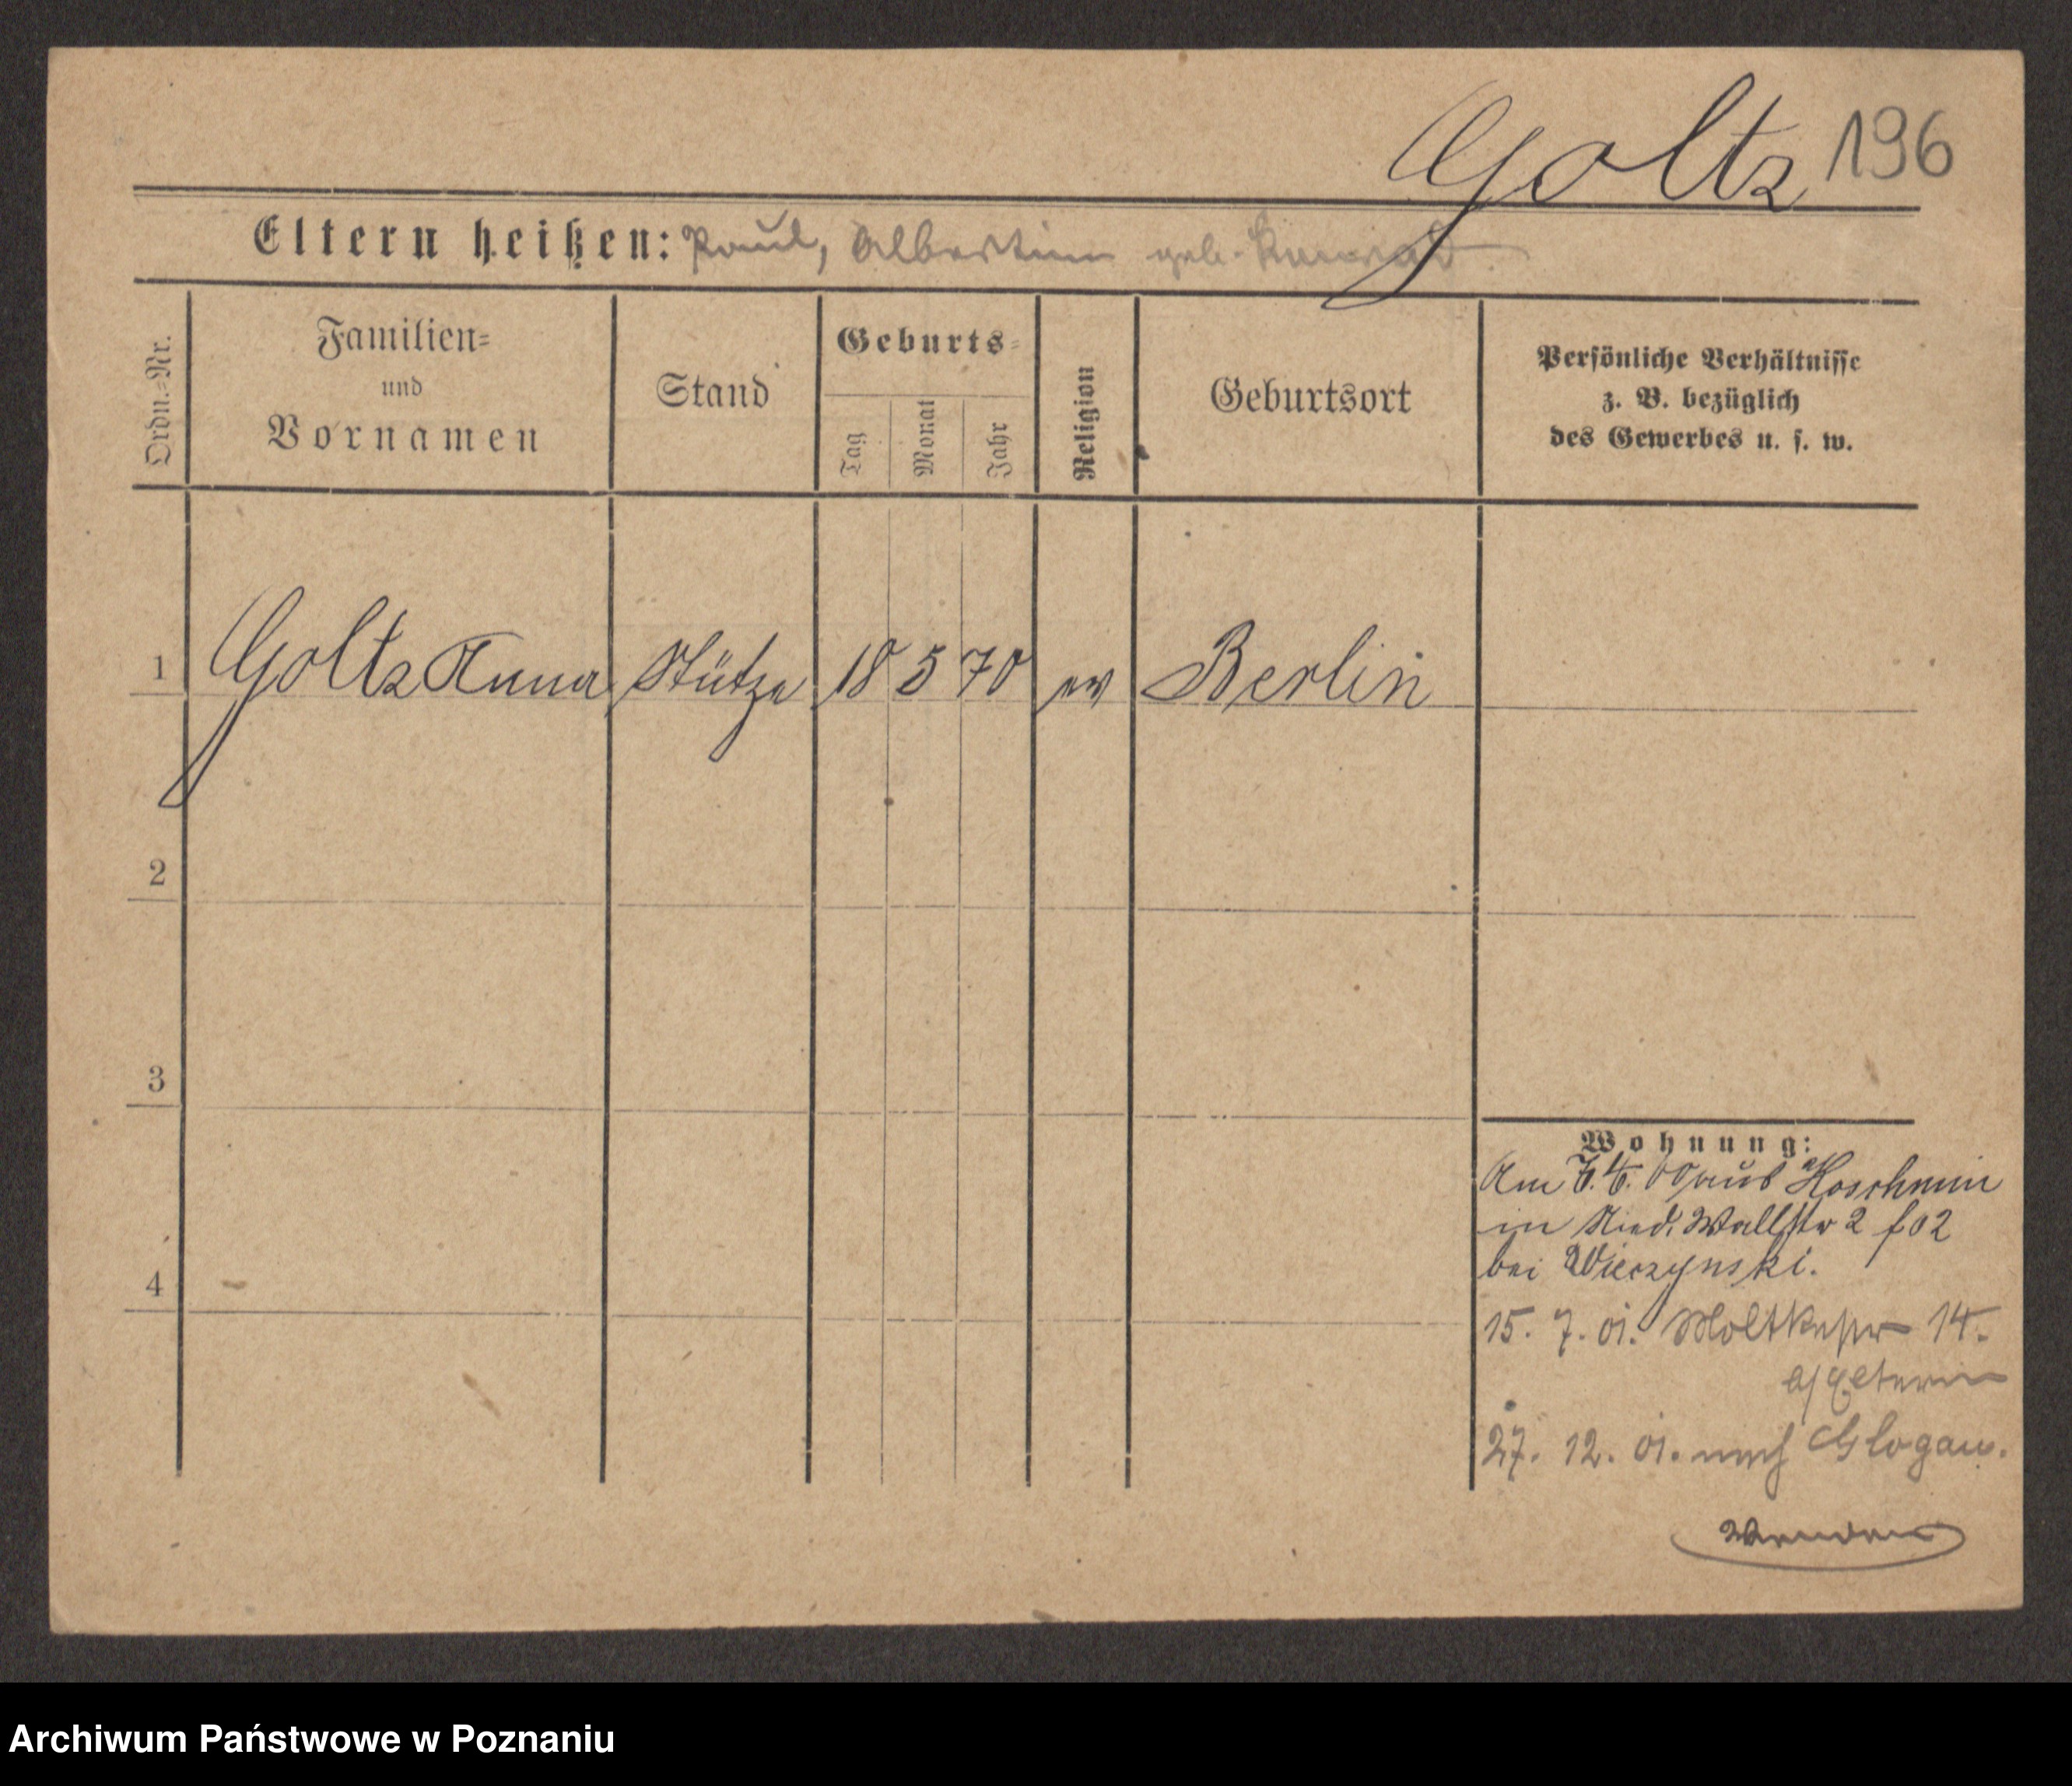 Goltz 196
Eltern heißen: Paul, Albertine geb.
Ordn.-Nr.
Familien- und Vornamen
Stand
Geburts-
Tag
Monat
Jahr
Religion
Geburtsort
Persönliche Verhältnisse
z. B. bezüglich
des Gewerbes u. s. w.
1 Goltz Anna Stütze 18 5 70 ev Berlin
2
3
4
Wohnung:
Am 7.4.00 aus Koschmin
in Nied. Wallstr 2
bei Wieczynski.
15. 7. 01. Moltkestr 14.
27. 12. 01. nach Glogau.
Wenden
Archiwum Państwowe w Poznaniu